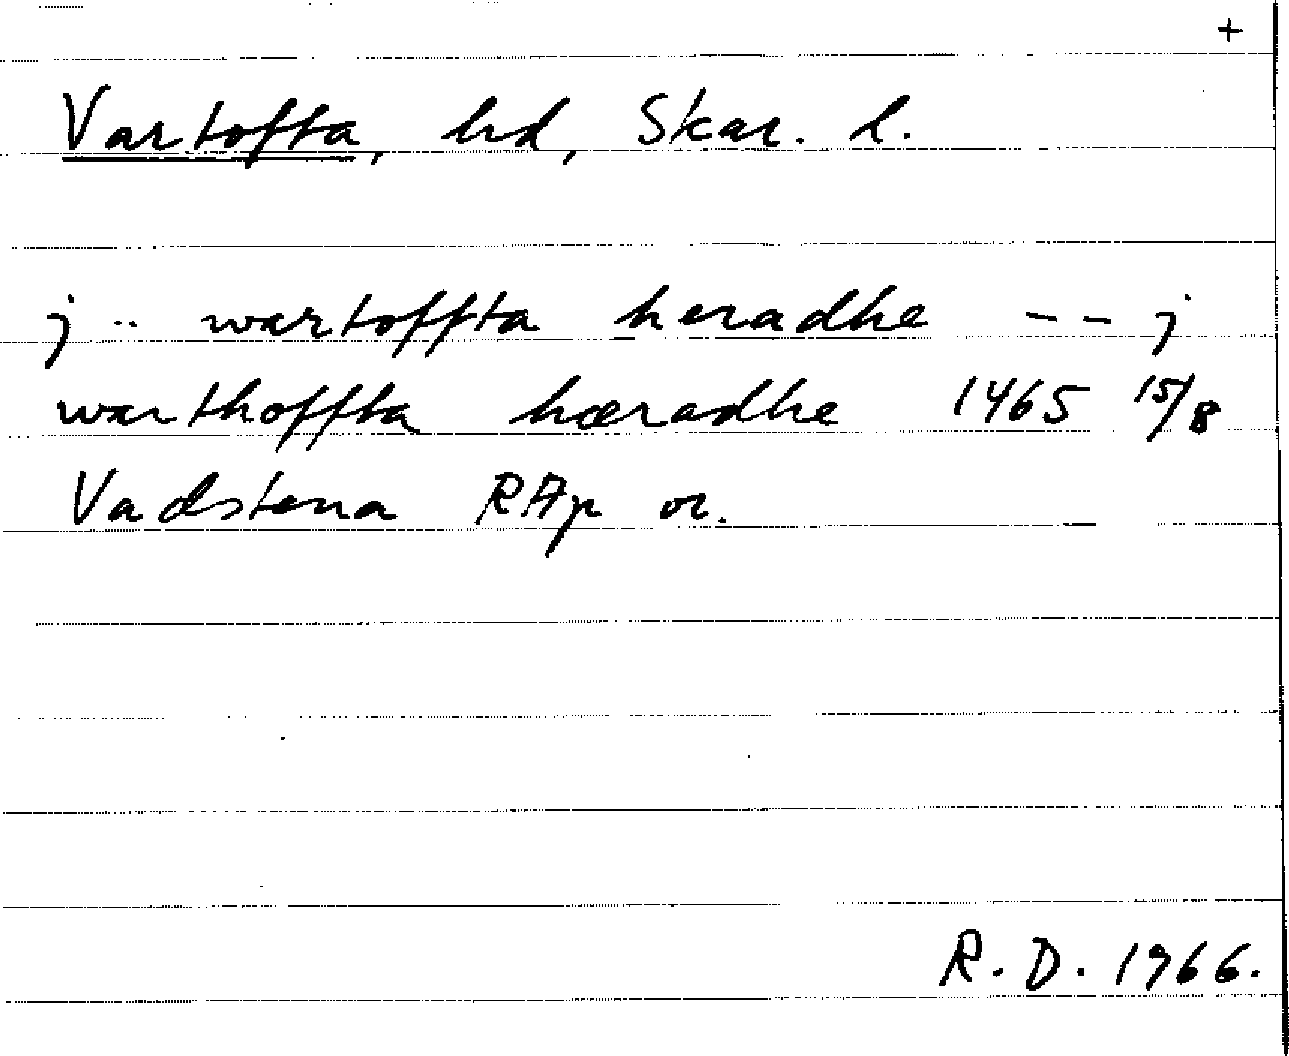 +
Vartofta, hd, Skar. l.
j .. wartoffta heradhe -- j
warthoffta hæradhe 1465 15/8
Vadstena RAp or.
R. D. 1966.